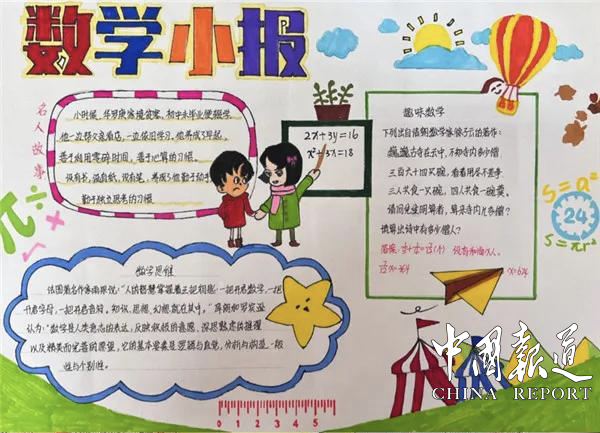 数学小报
名人故事
小时候,华罗庚家境贫寒,初中未毕业便辍学
他一边努力看店,一边依旧学习,他养成了早起,
善于利用零碎时间,善于心算的习惯。
没有书,
勤于独立思考的习惯
2x+3y=16
趣味数学
下列出自清朝数学家徐子云的著作:
巍巍古寺在云中,不知寺内多少僧
三百六十四只碗,看看用尽不差争
三人共食一只碗,四人共食一碗羹。
请问先生明算者,算来寺内几多僧?
请算出诗中有多少僧人?
x=624
24
S=a²
S=πr²
π
÷
数学思维
法国著名作家雨果说:"人的智慧掌握着三把钥匙,一把开启数字,一把
开启字母,一把开启音符。知识、思想、幻想就在其中。"
认为:"数学是人类意志的表达,反映积极的意愿,深思熟虑的推理
以及精美而完善的愿望,它的基本要素是逻辑与直觉,分析与构造,一般
性与个别性。
0 1 2 3 4 5
中国报道
CHINA REPORT